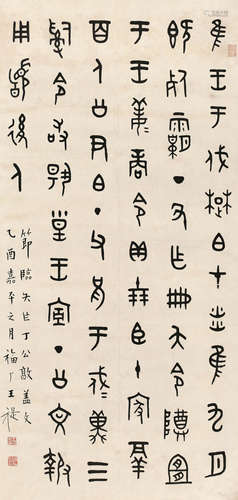 隹王于伐楚白才炎隹九月
既死霸丁丑乍冊夨令尊宜
于王姜商令貝十朋臣十家鬲
百人公尹白丁父兄于戍冀三
令敢揚皇王室丁公文報
用後人
節臨夨乍丁公敦蓋文
乙酉嘉平之月福厂王禔